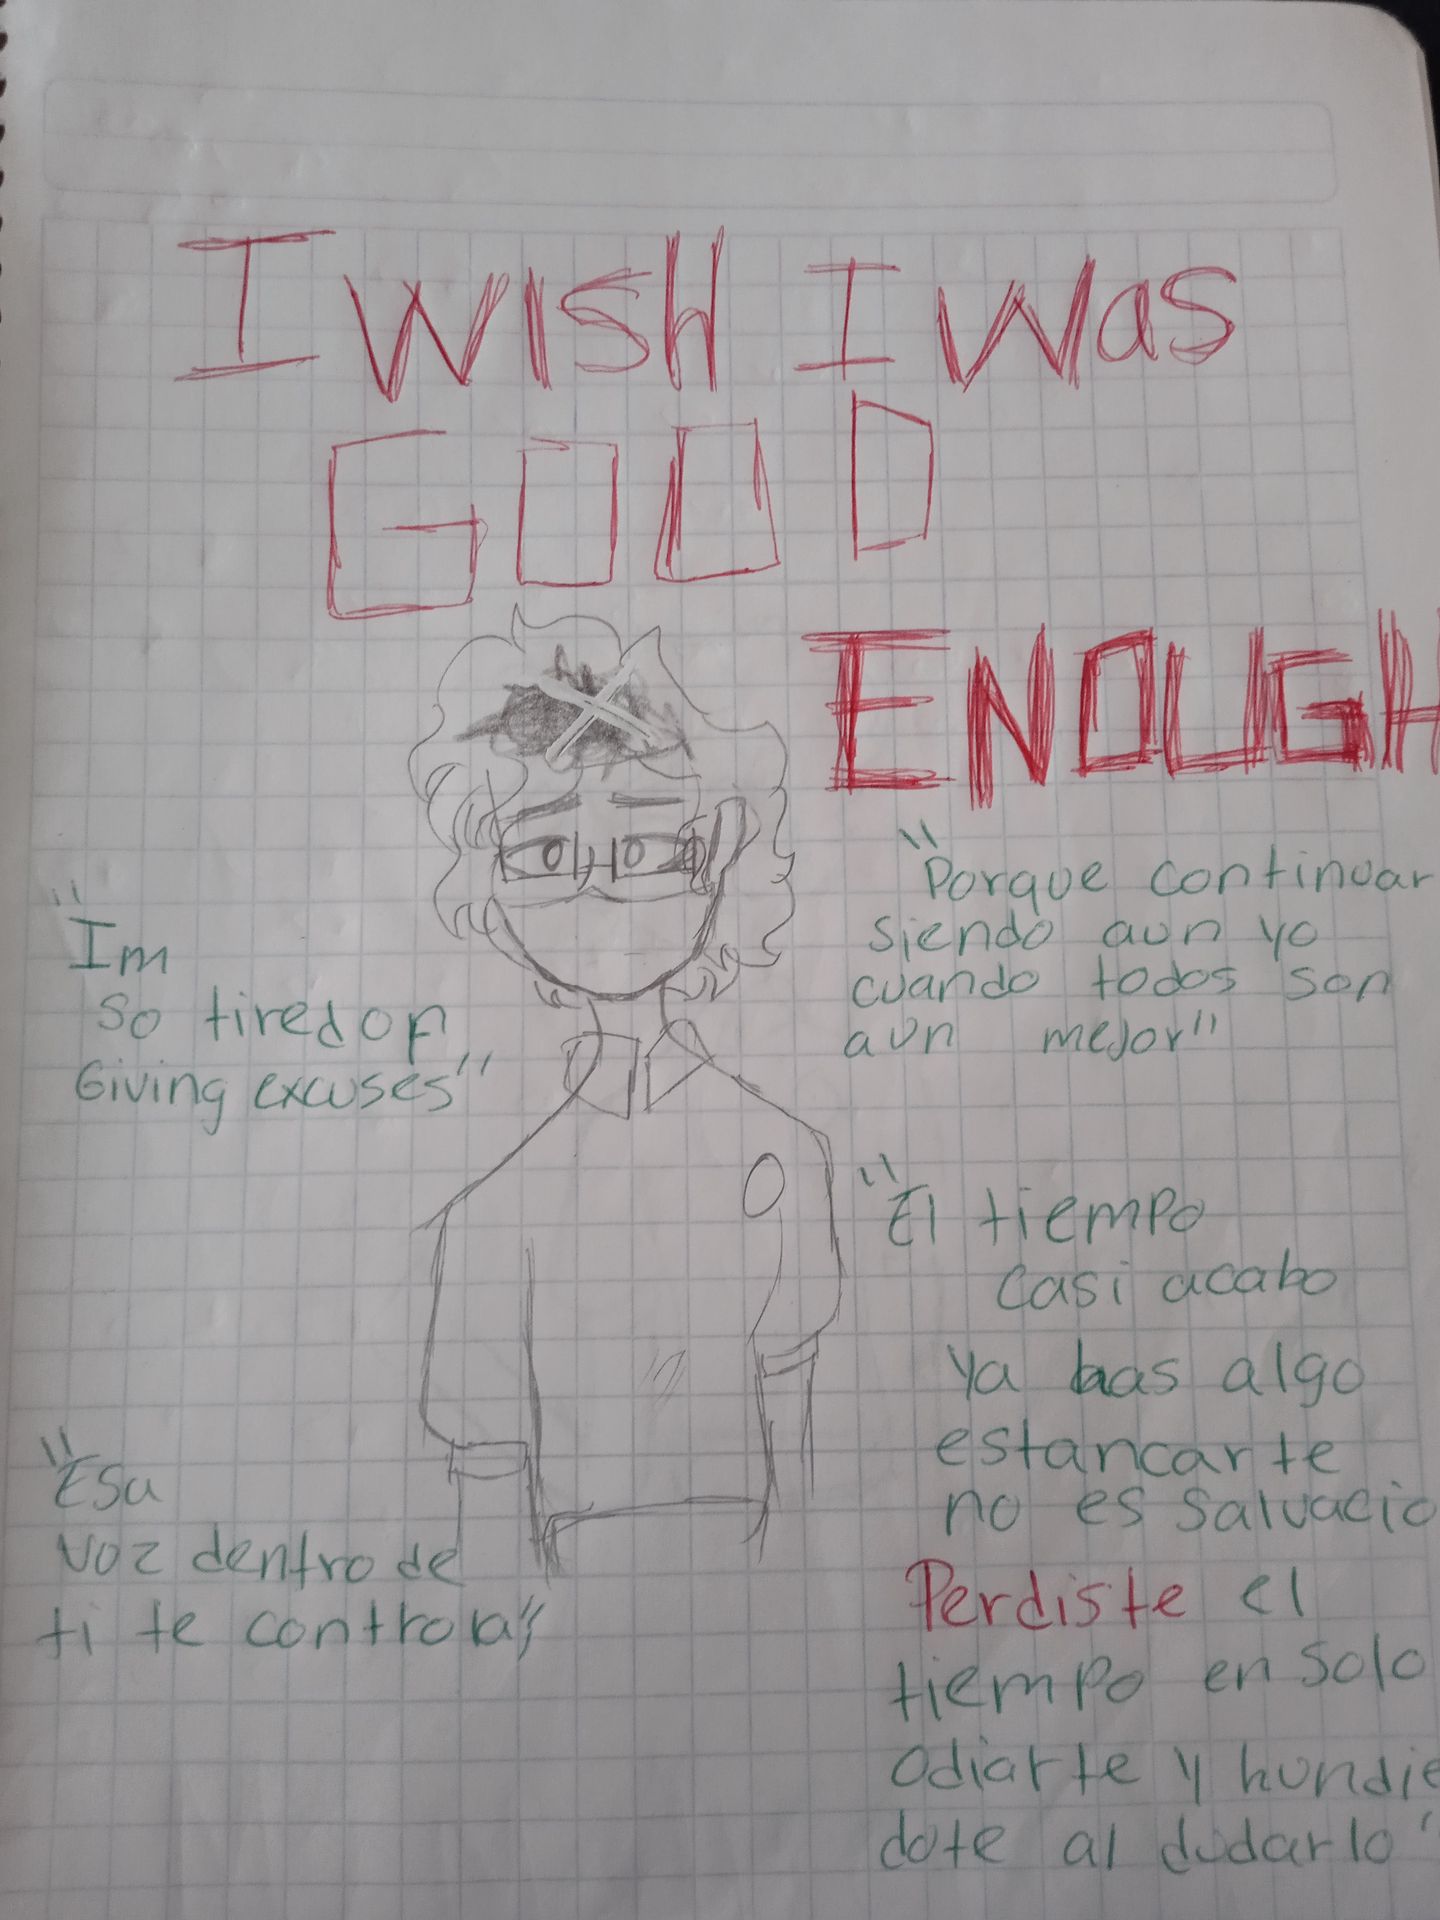 I WISH I Was
GOOD
ENOUGH
"Porque continuar
siendo aun yo
cuando todos son
aun mejor"
"Im
so tired of
Giving excuses"
"El tiempo
casi acabo
ya has algo
estancarte
no es salvacio
Perdiste el
tiempo en solo
odiarte y hundie
dote al dudarlo"
"Esa
voz dentro de
ti te controla"